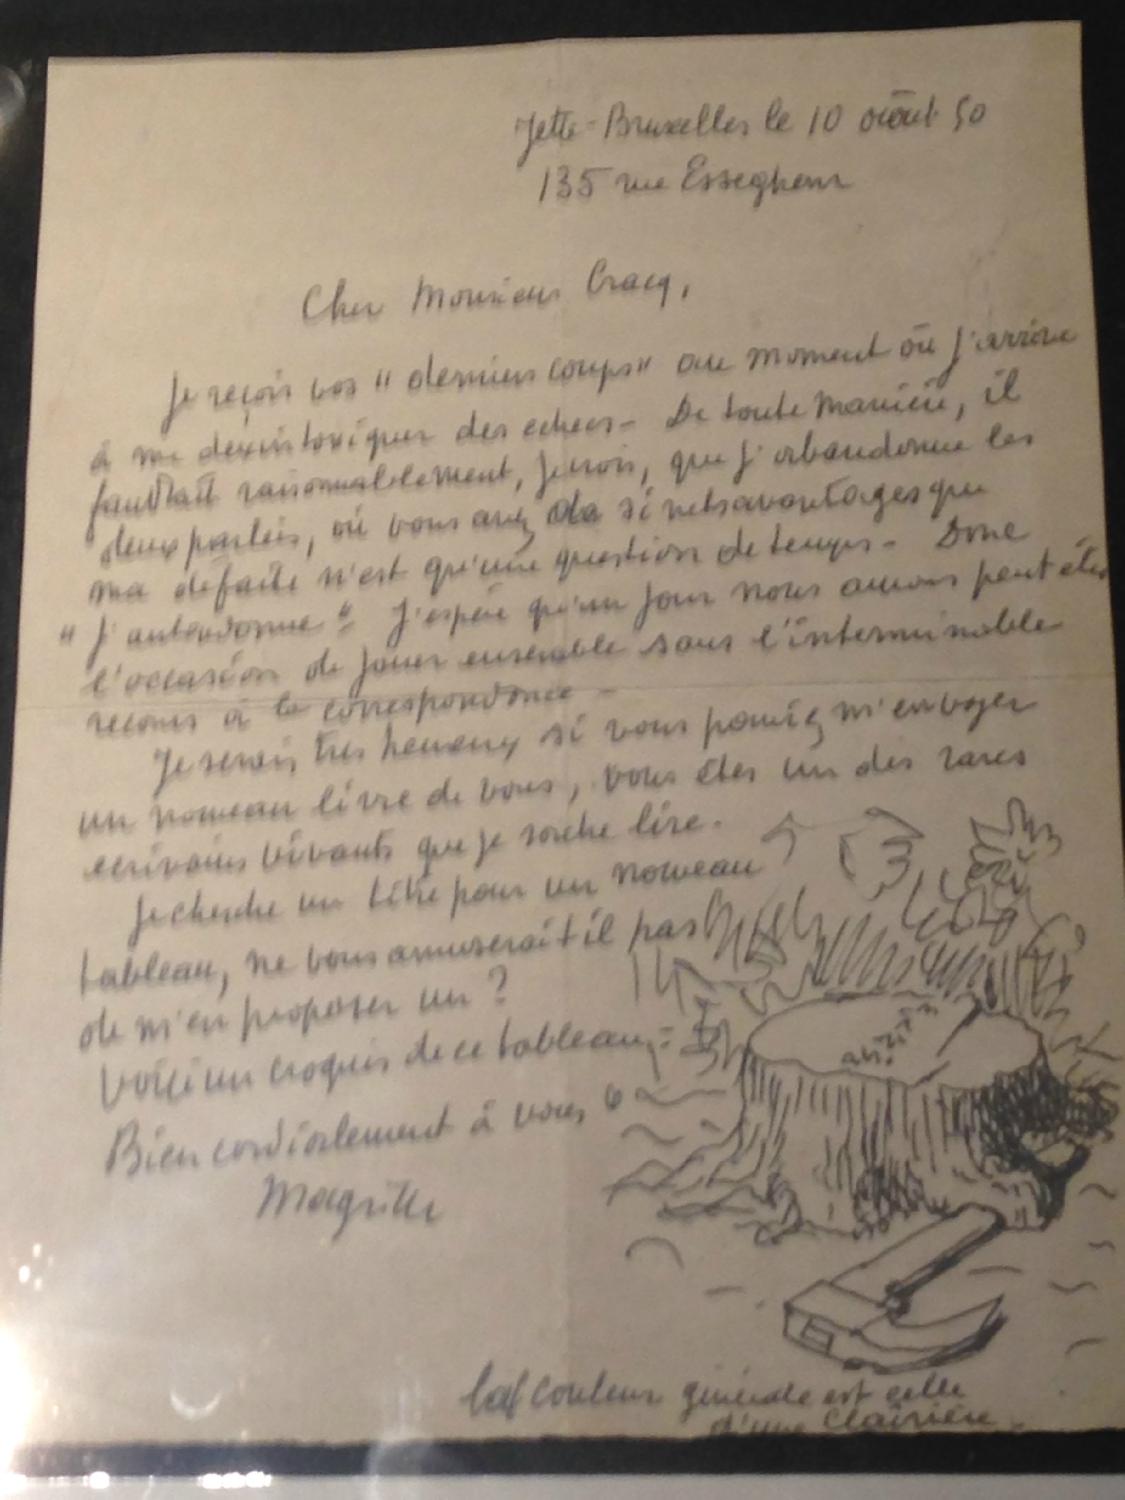 Jette-Bruxelles le 10 août 50
135 rue Esseghem
Cher Monsieur Gracq,
Je reçois vos "derniers coups" au moment où j'arrive
à me désintoxiquer des echecs - De toute manière, il
faudrait raisonnablement, je crois, que j'abandonne les
deux parties, où vous avez de si nets avantages que
ma défaite n'est qu'une question de temps - Donc
"j'abandonne". J'espère qu'un jour nous aurons peut être
l'occasion de jouer ensemble sans l'interminable
recours à la correspondance -
Je serais très heureux si vous pouviez m'envoyer
un nouveau livre de vous, vous êtes un des rares
écrivains vivants que je sache lire.
Je cherche un titre pour un nouveau
tableau, ne vous amuserait il pas
de m'en proposer un ?
Voici un croquis de ce tableau :
Bien cordialement à vous
Magritte
La couleur générale est celle
d'une clairière -